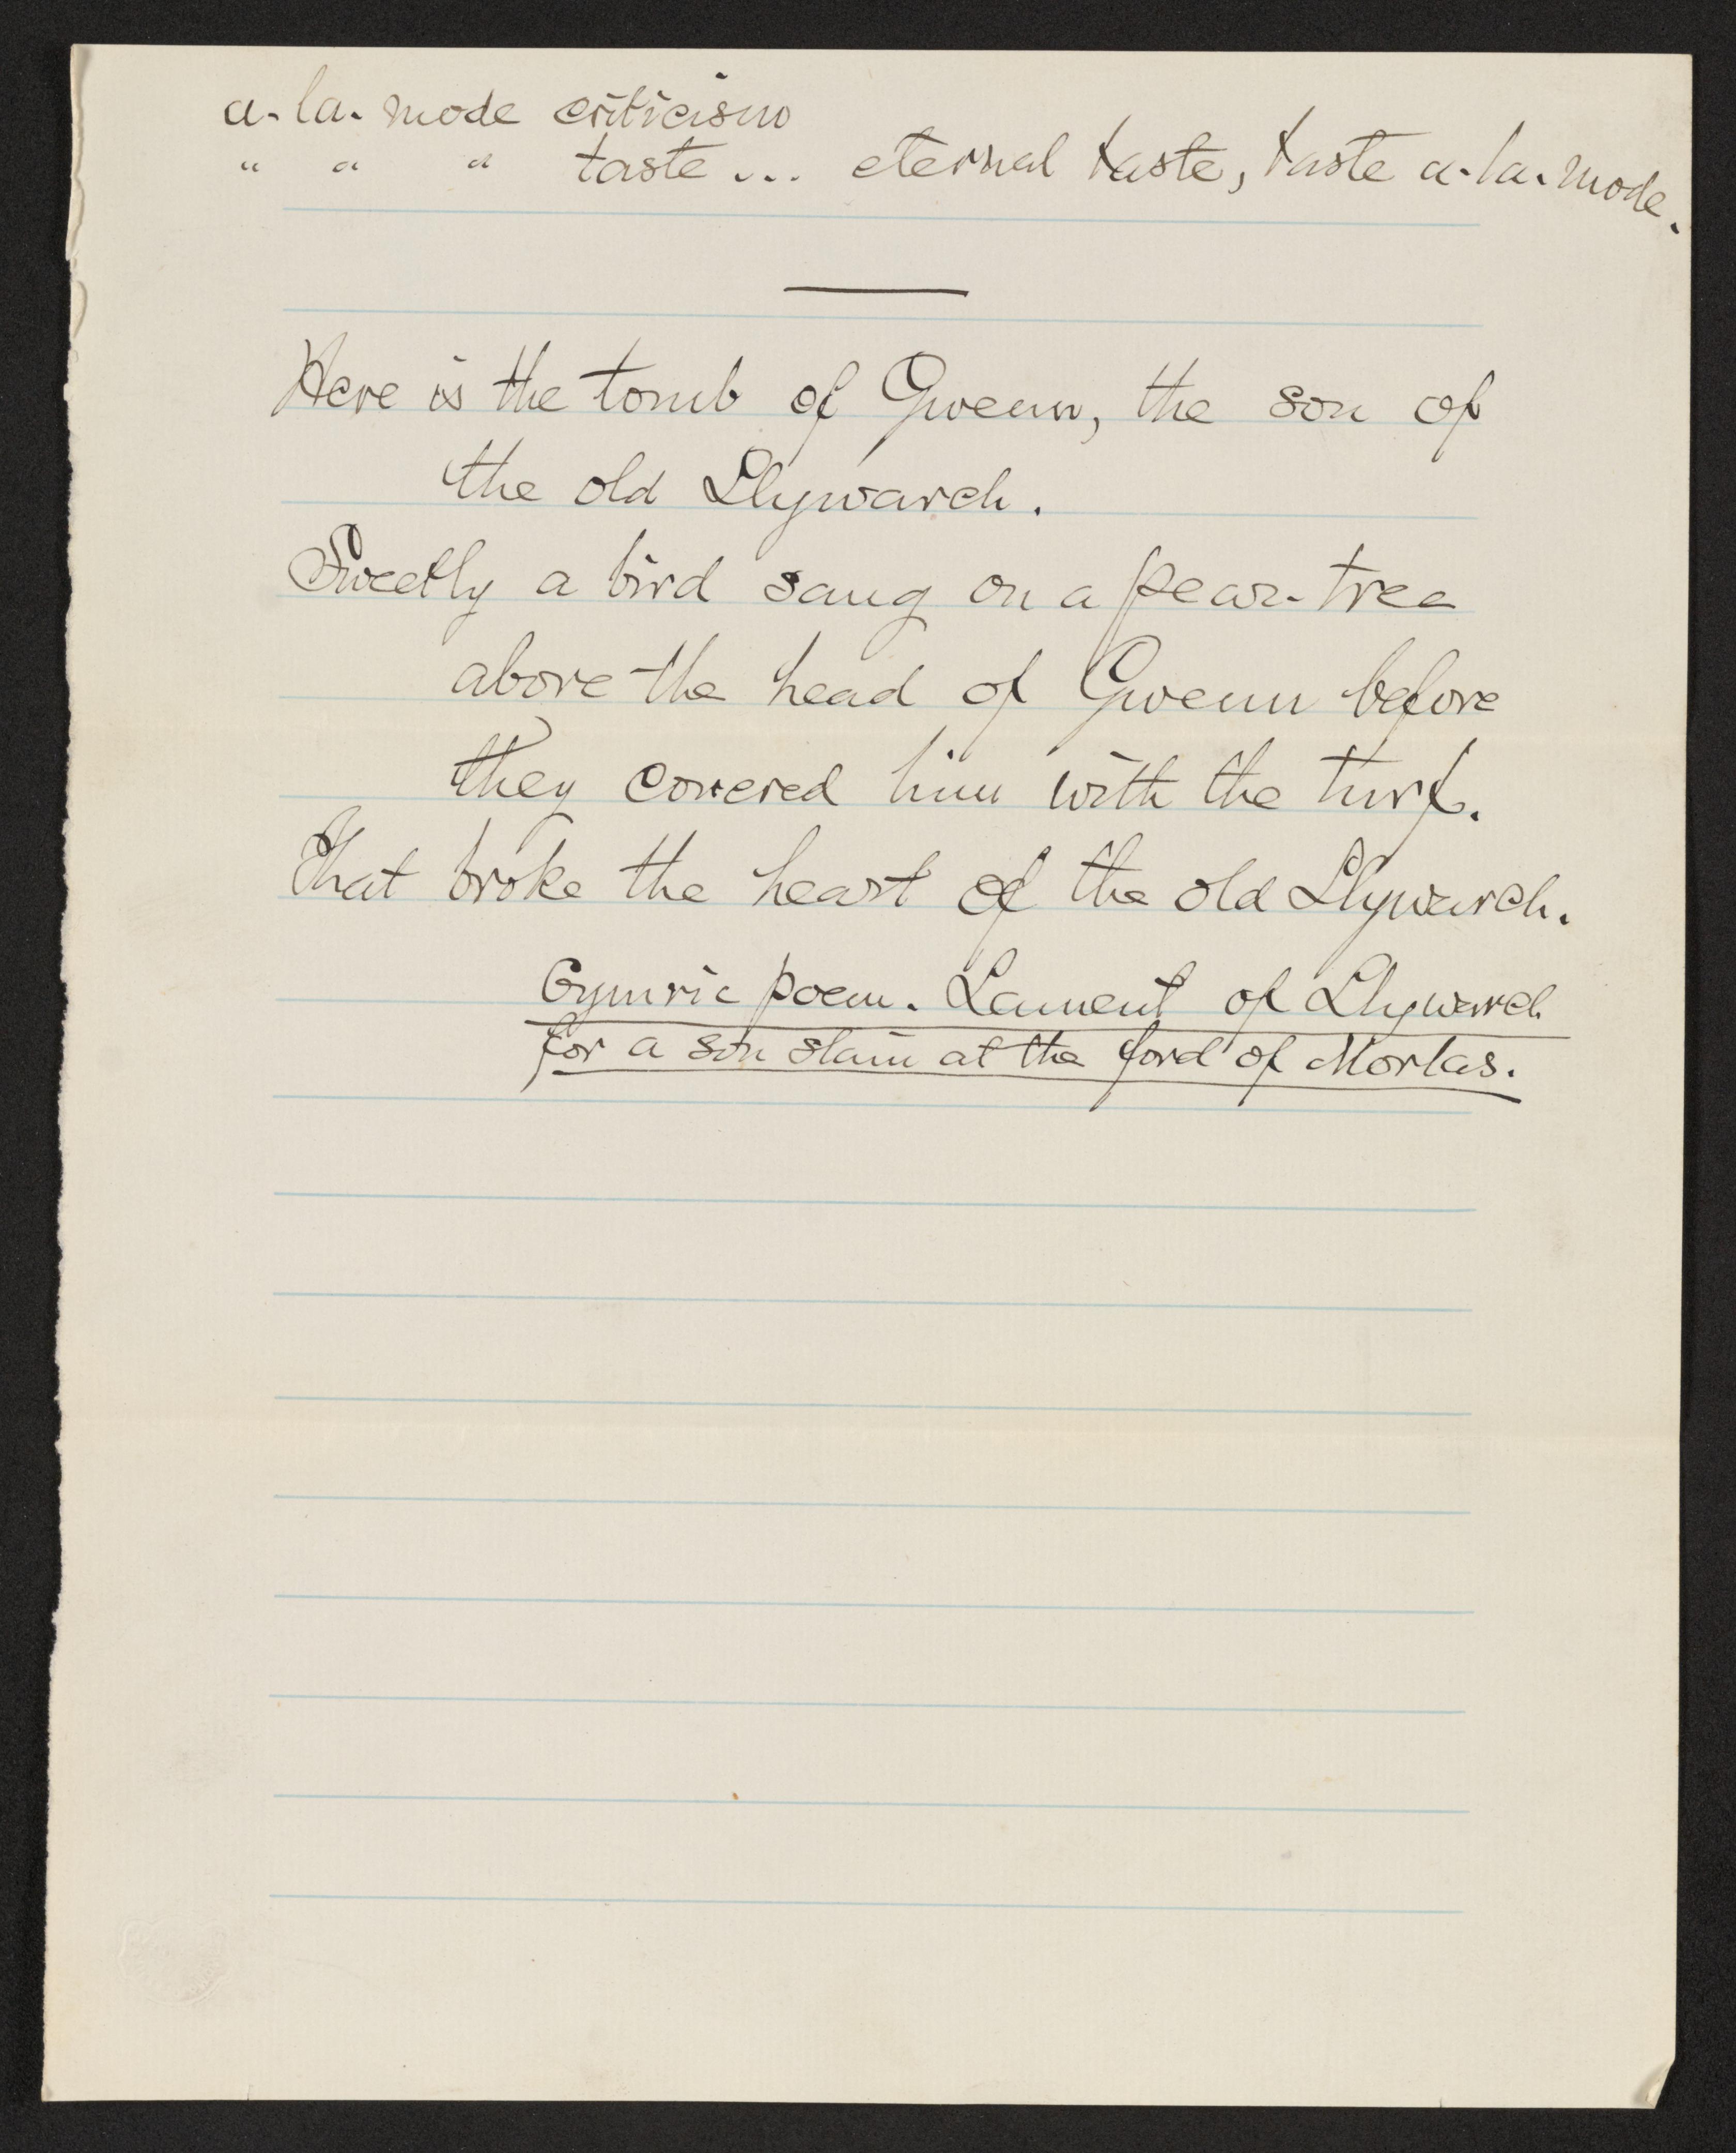 a-la-mode criticism
" " " taste ... eternal taste, taste a-la-mode.
Here is the tomb of Gwenn, the son of
the old Llywarch.
Sweetly a bird sang on a pear-tree
above the head of Gwenn before
they covered him with the turf.
That broke the heart of the old Llywarch.
Cymric poem. Lament of Llywarch
for a son slain at the ford of Morlas.